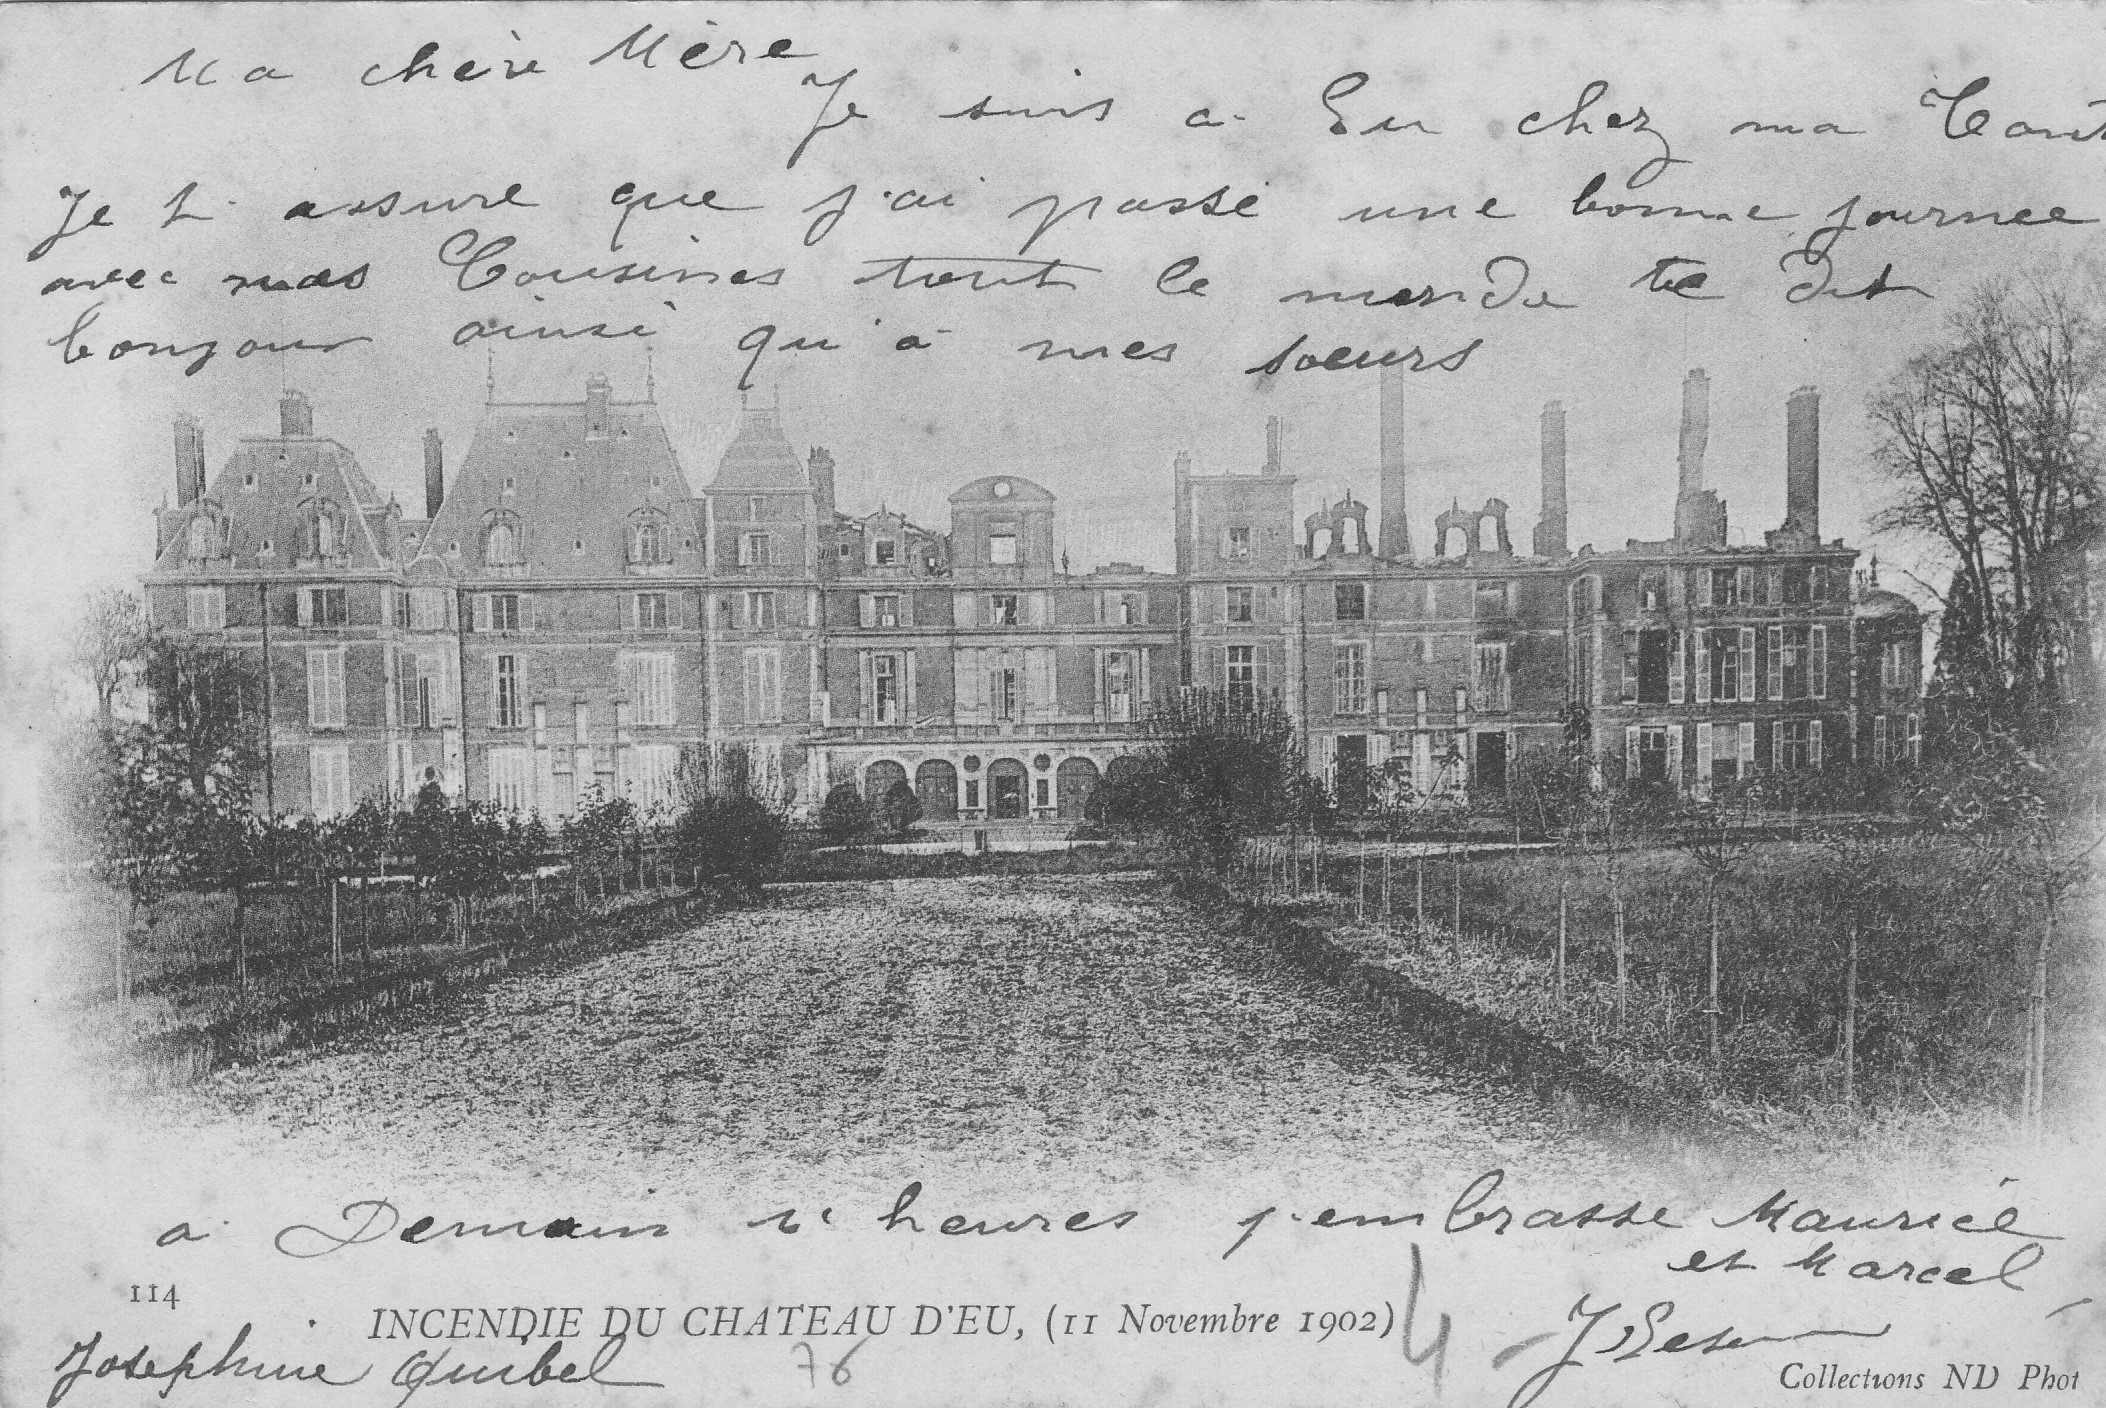 Ma chère Mère
Je suis a Eu chez ma Tant
Je t assure que j'ai passé une bonne journee
avec mes Cousines tout le monde te dit
bonjour ainsi qu'à mes soeurs
a Demain heures j'embrasse Maurice
et Marcel
114
INCENDIE DU CHATEAU D'EU, (11 Novembre 1902)
4
Josephine Quibel
76
Collections ND Phot